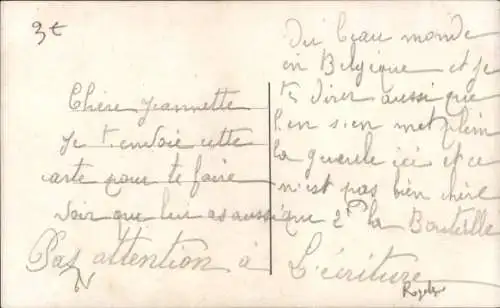 3€
Chère Jeannette
Je t'envoie cette
carte pour te faire
voir que lui as aussi
du beau monde
en Belgique et je
te direr aussi que
l'en s'en met plein
la gueule ici et ce
n'est pas bien chère
que 2 la Bouteille
Pas attention à L'écriture